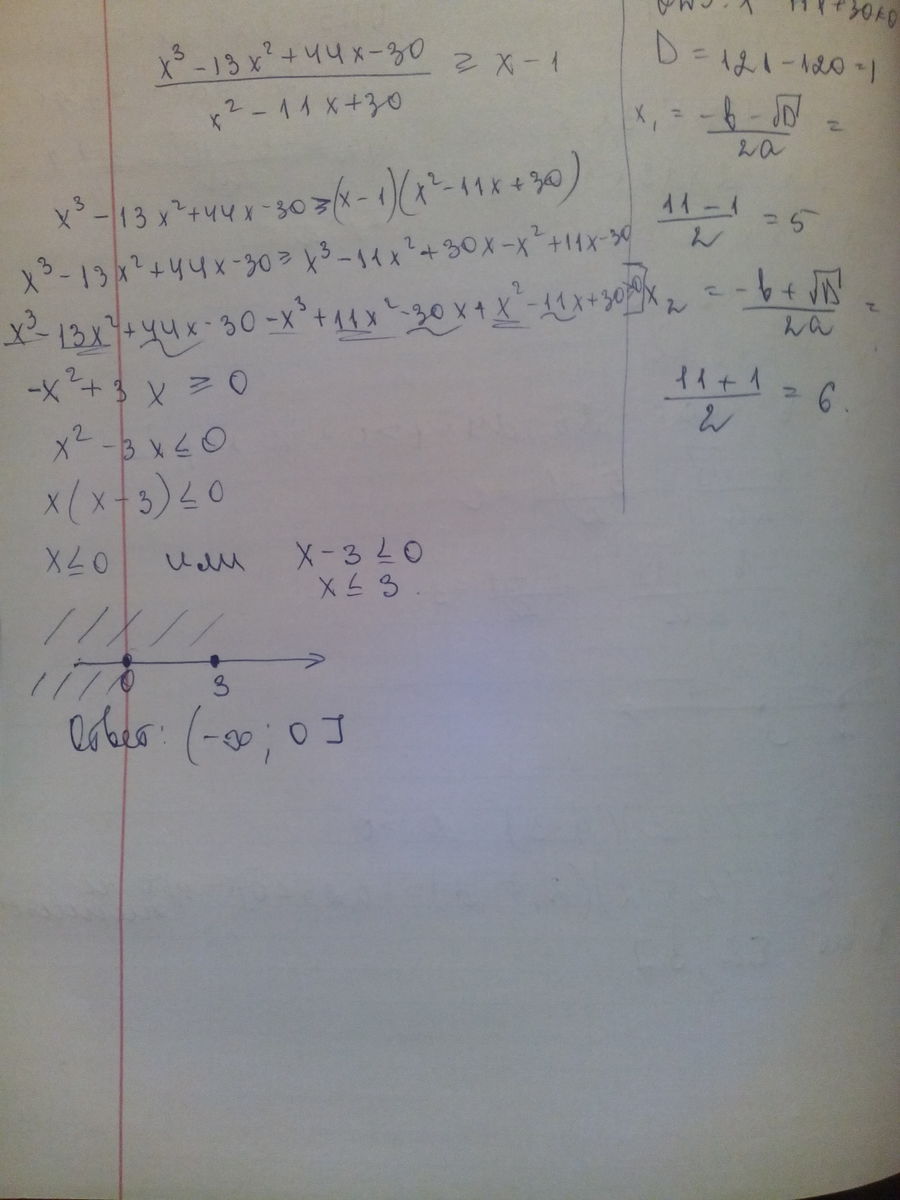 x³ - 13x² + 44x - 30 / x² - 11x + 30 ≥ x - 1
x³ - 13x² + 44x - 30 ≥ (x - 1)(x² - 11x + 30)
x³ - 13x² + 44x - 30 ≥ x³ - 11x² + 30x - x² + 11x - 30
x³ - 13x² + 44x - 30 - x³ + 11x² - 30x + x² - 11x + 30 ≥ 0
-x² + 3x ≥ 0
x² - 3x ≤ 0
x(x - 3) ≤ 0
x ≤ 0 или x - 3 ≤ 0
x ≤ 3.
0 3
Ответ: (-∞; 0]
11x + 30 ≠ 0
D = 121 - 120 = 1
x₁ = -b - √D / 2a =
11 - 1 / 2 = 5
x₂ = -b + √D / 2a =
11 + 1 / 2 = 6.